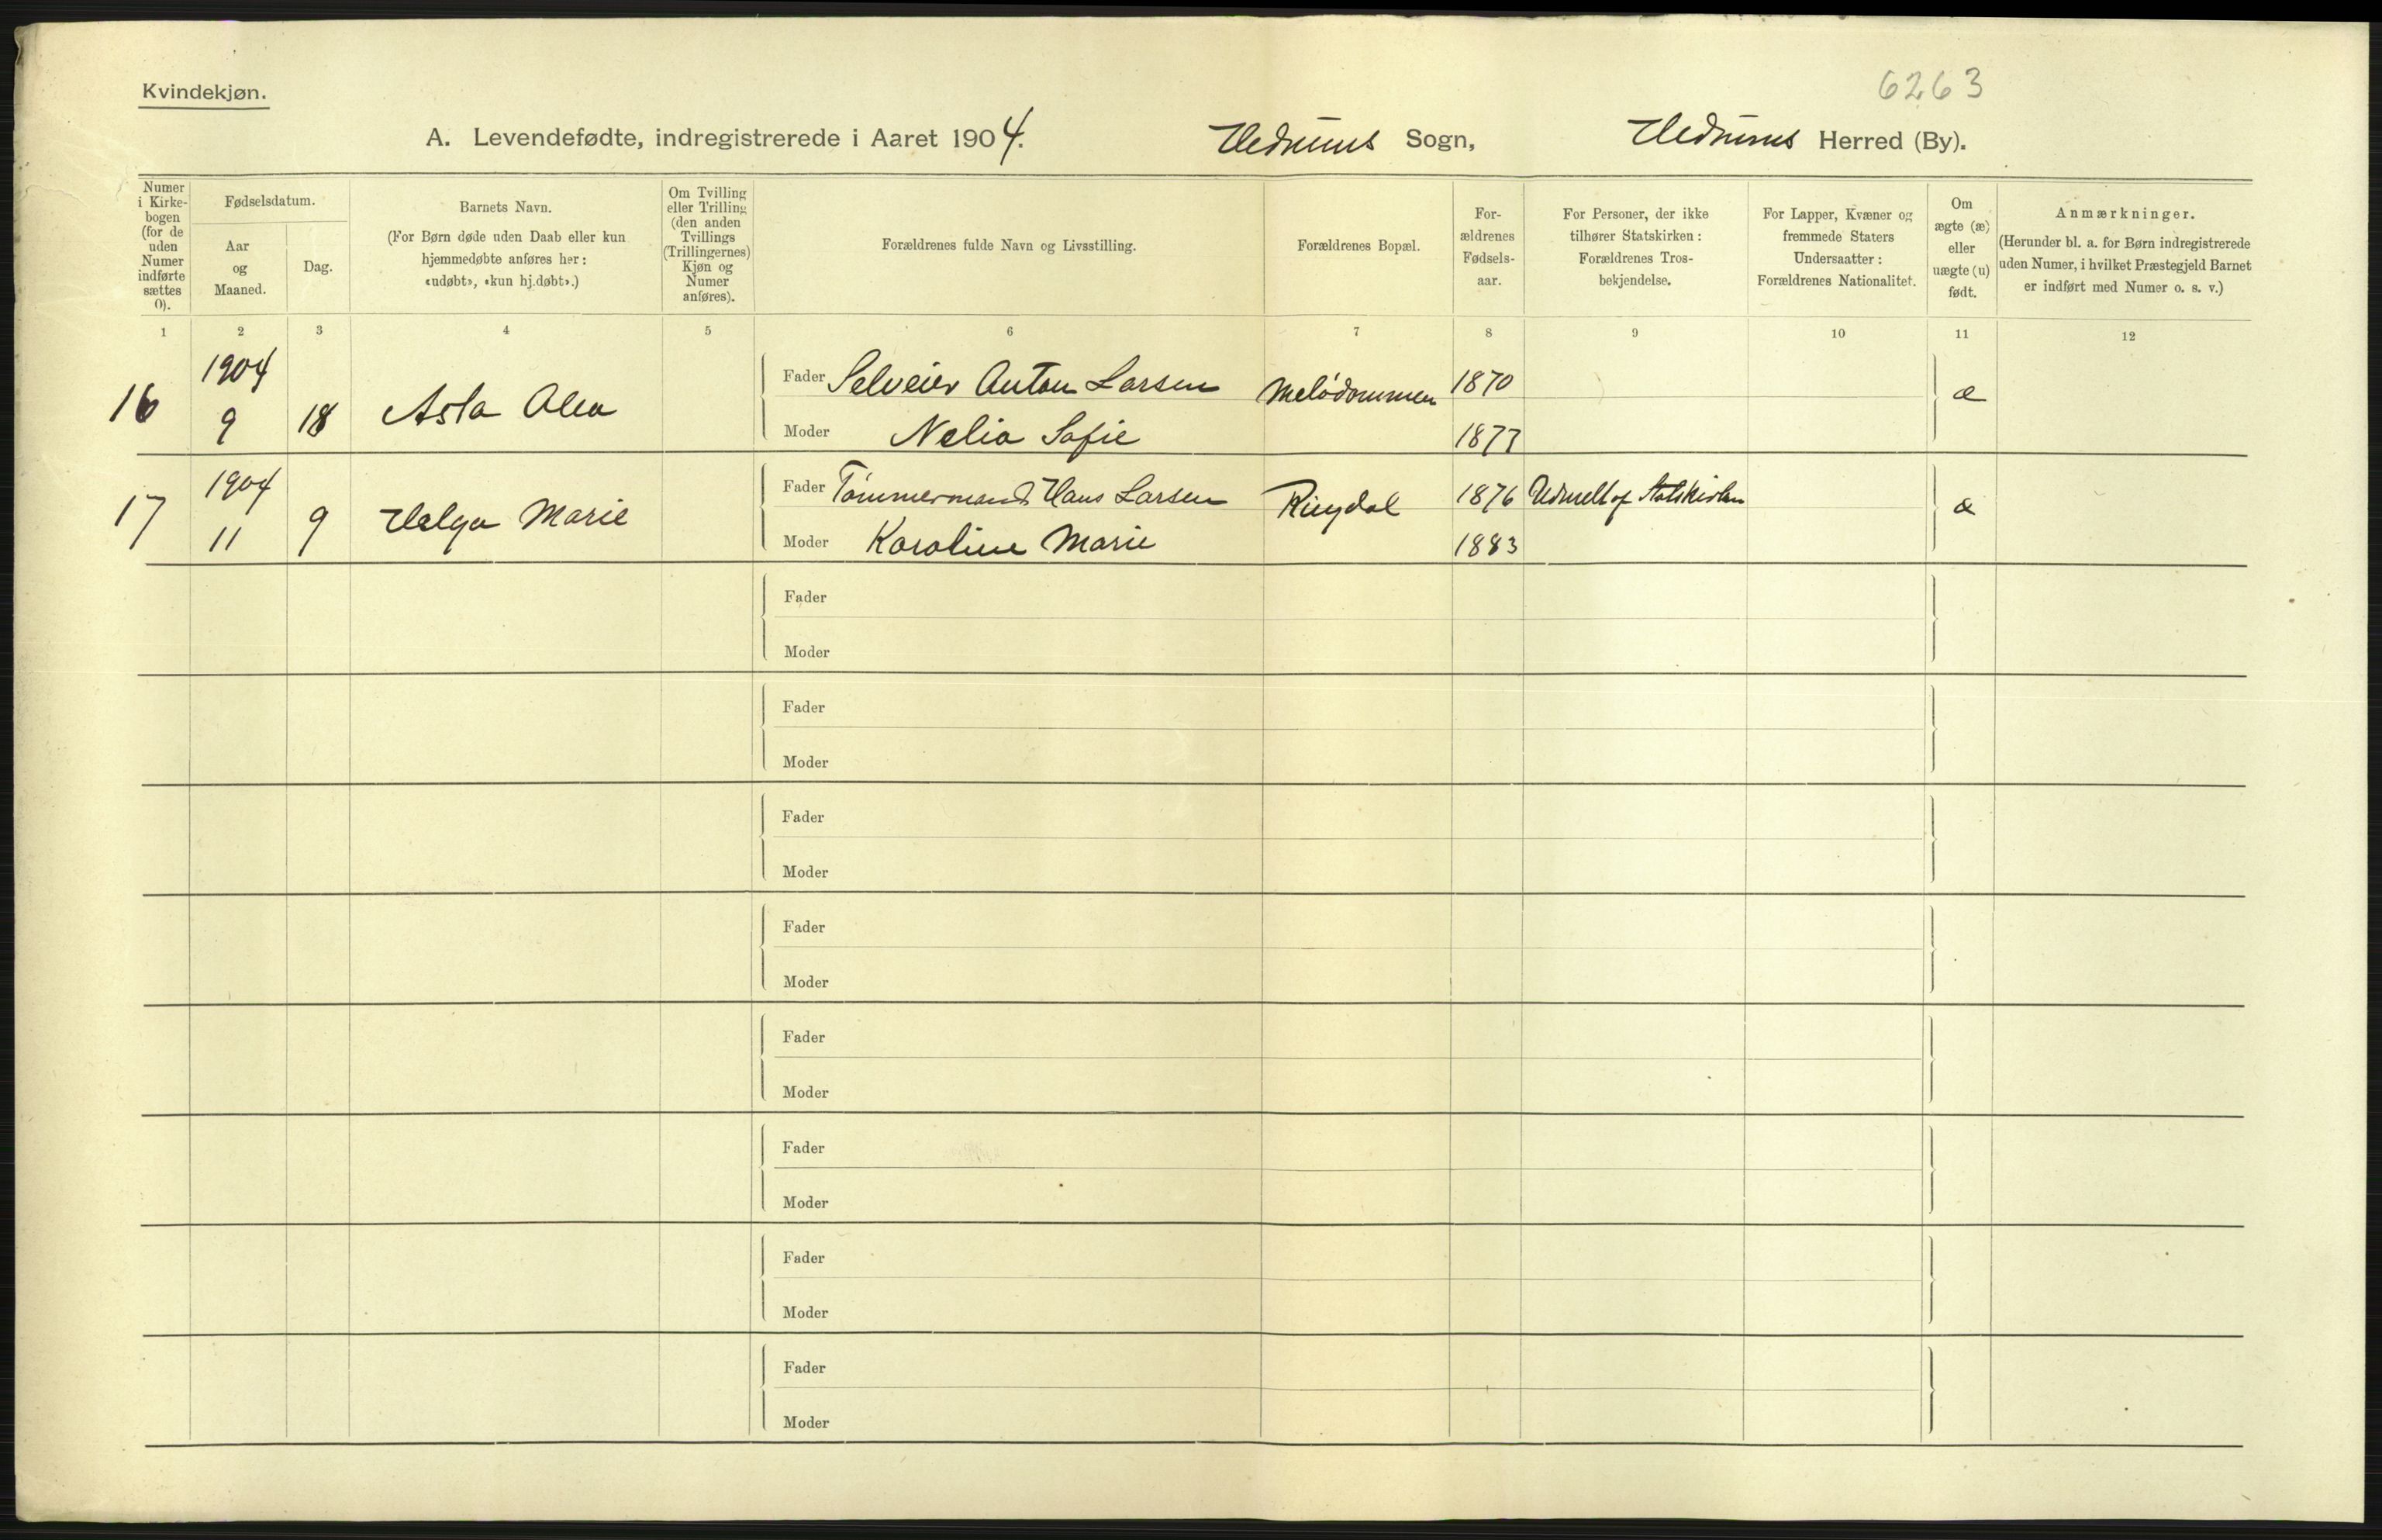 Kvindekjøn.
6263
A. Levendefødte, indregistrerede i Aaret 1904. Hedrums Sogn, Hedrums Herred (By).
Numer i Kirke-bogen (for de uden Numer indførte sættes 0).
Fødselsdatum.
Aar og Maaned.
Dag.
Barnets Navn.
(For Børn døde uden Daab eller kun
hjemmedøbte anføres her:
«udøbt», «kun hj.døbt».)
Om Tvilling
eller Trilling
(den anden
Tvillings
(Trillingernes)
Kjøn og
Numer
anføres).
Forældrenes fulde Navn og Livsstilling.
Forældrenes Bopæl.
For-
ældrenes
Fødsels-
aar.
For Personer, der ikke
tilhører Statskirken:
Forældrenes Tros-
bekjendelse.
For Lapper, Kvæner og
fremmede Staters
Undersaatter:
Forældrenes Nationalitet.
Om
ægte (æ)
eller
uægte (u)
født.
Anmærkninger.
(Herunder bl. a. for Børn indregistrerede
uden Numer, i hvilket Præstegjeld Barnet
er indført med Numer o. s. v.)
1 2 3 4 5 6 7 8 9 10 11 12
16 1904 9 18 Asta Alea Fader Selveier Anton Larsen Melödammen 1870 æ
Moder Nelia Sofie 1877
17 1904 11 9 Helga Marie Fader Tømmermand Hans Larsen Ringdal 1876 Udmeldt af Statskirken æ
Moder Karoline Marie 1883
Fader
Moder
Fader
Moder
Fader
Moder
Fader
Moder
Fader
Moder
Fader
Moder
Fader
Moder
Fader
Moder